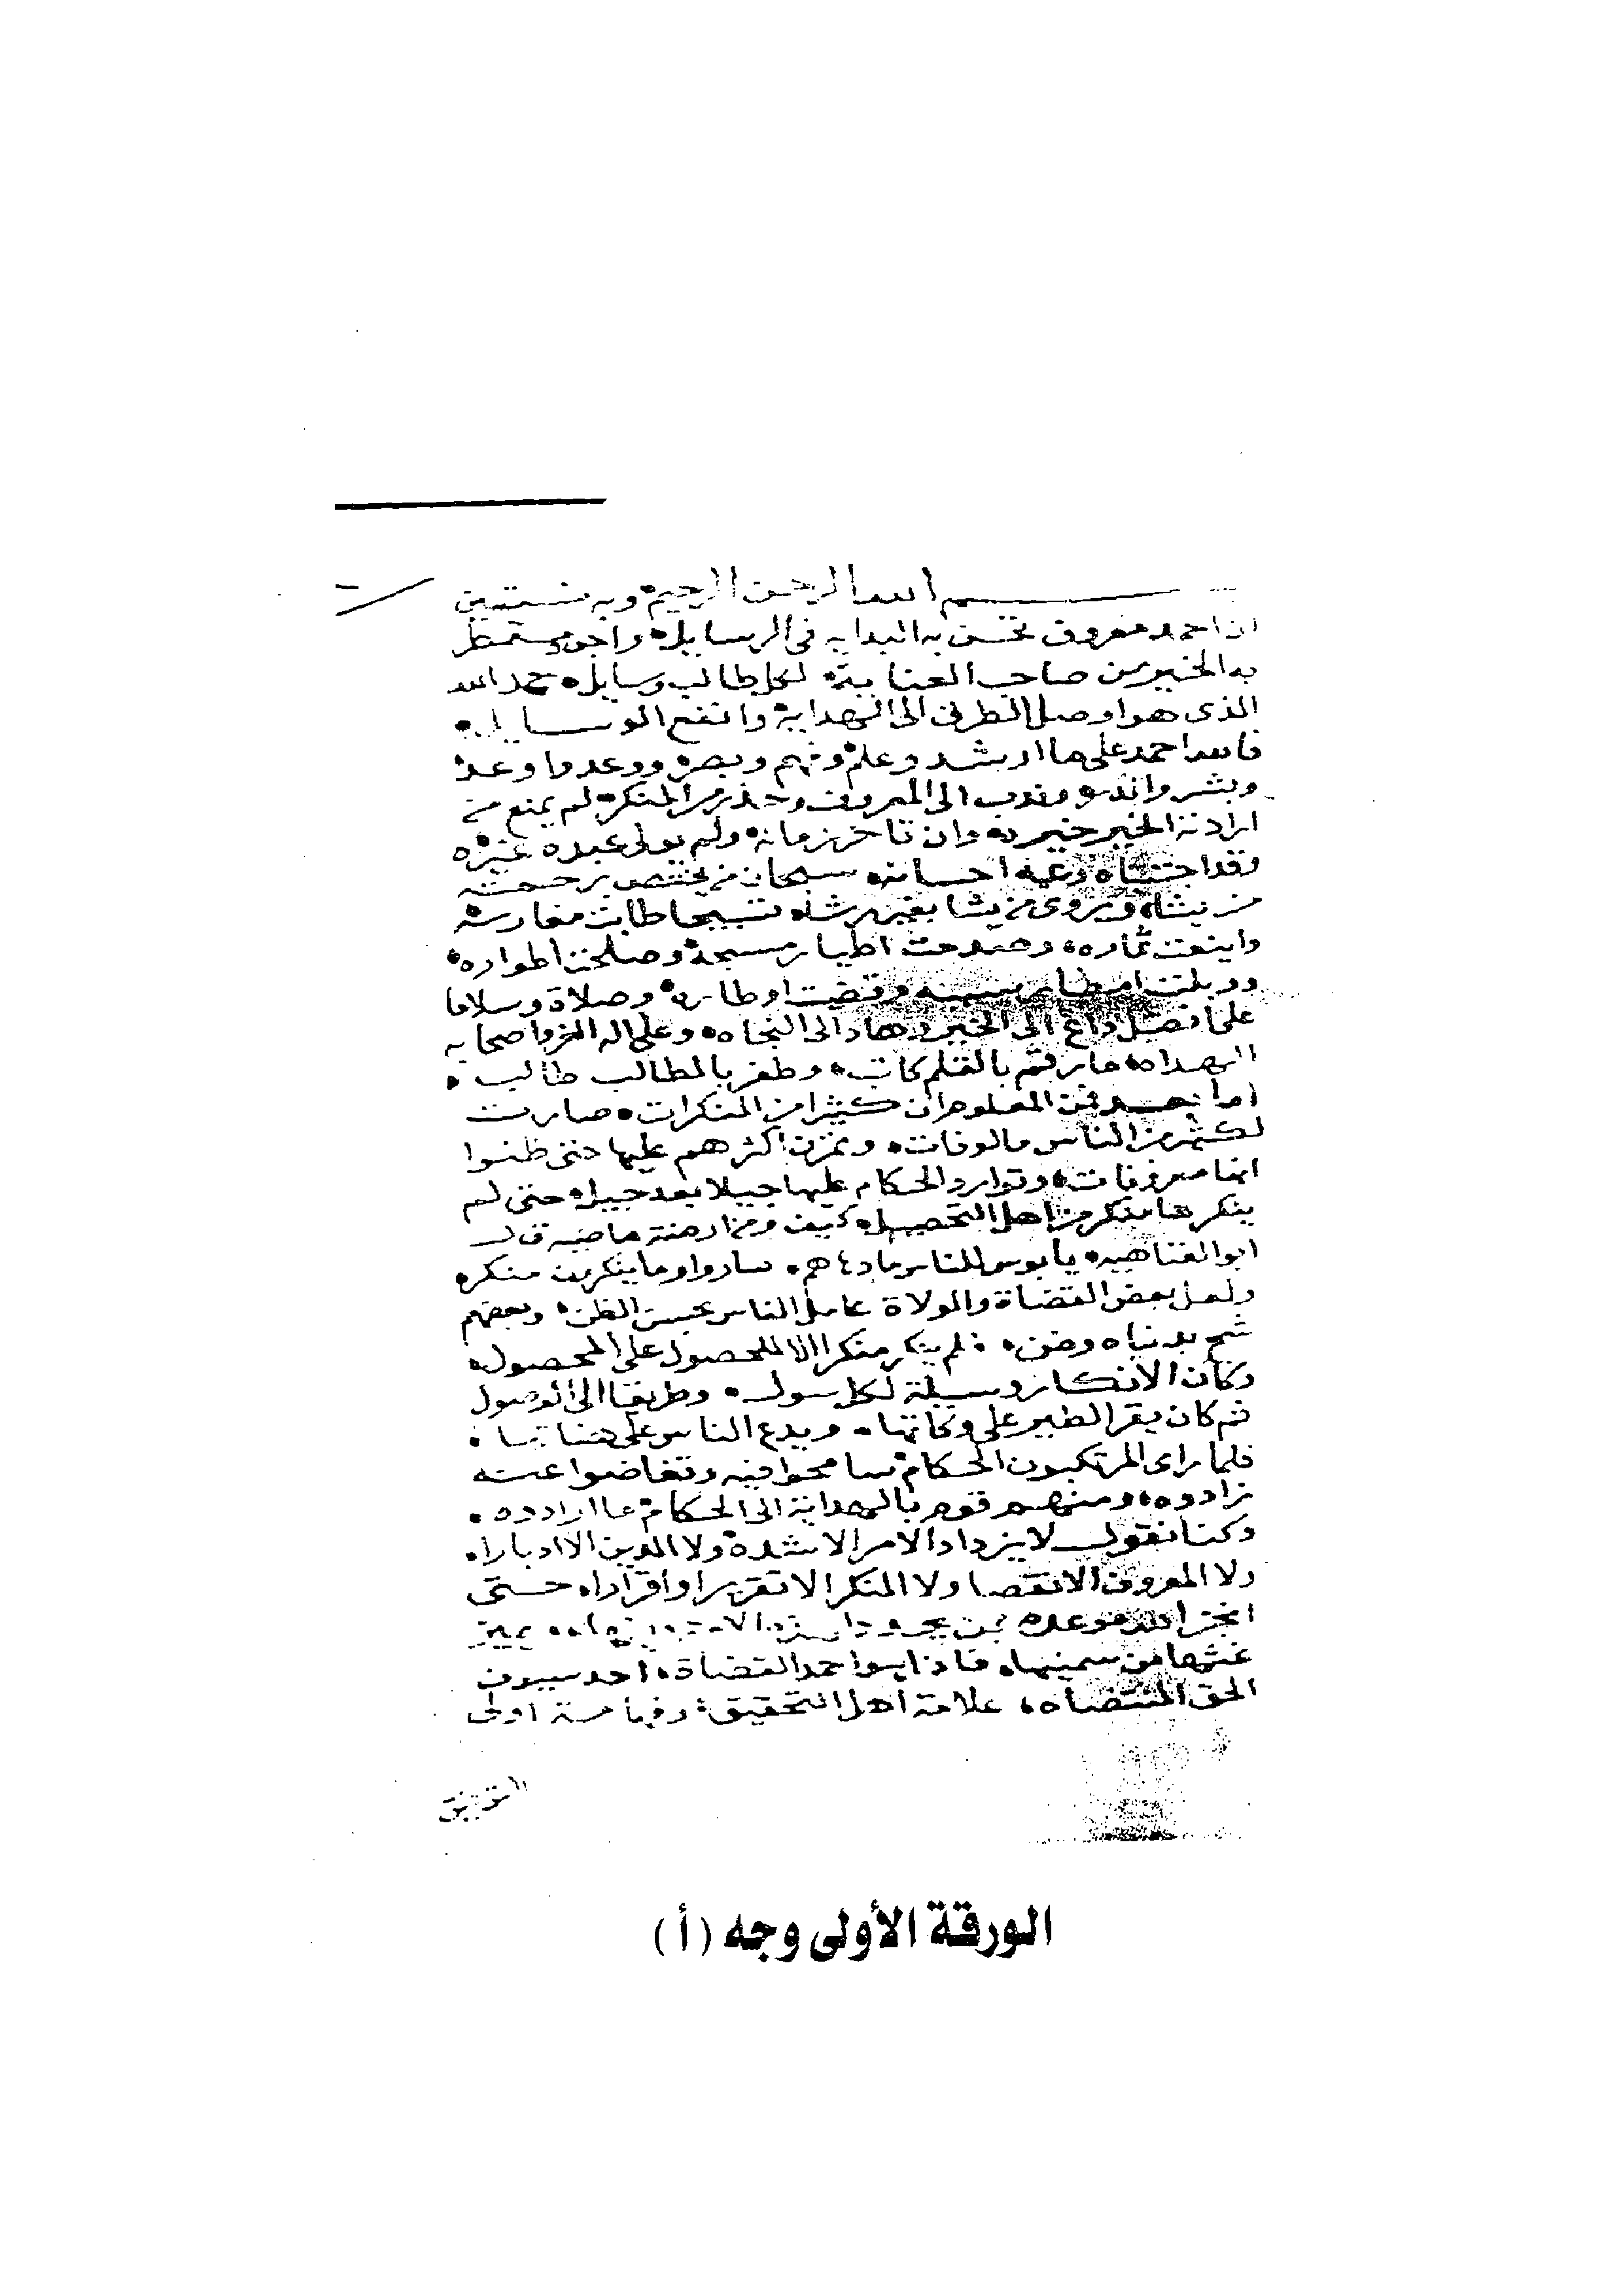 بسم الله الرحمن الرحيم وبه نستعين
ان احمد معروف تحسن به البداية في الرسايل واجن مستمطر
به الخير من صاحب العناية لكل طالب وسايل حمد الله
الذي هو اوصل الطرق الى الهداية وانفع الوسايل
فالله احمد على ما ارشد وعلم وفهم وبصر ووعد واوعد
وبشر وانذر وندب الى المعروف وحذر من المنكر لم يمنع من
اراد به الخير خيره وان تاخر زمانه ولم يولى عبده غيره
وقد اجتباه وعمه احسانه سبحان من يختص برحمته
من يشاء ويروى من يشا بغير رشاء تسبيحا طابت مغارسه
واينعت ثماره وصدحت اطيار مسبحه وصلحت اطواره
ووبلت امطار وقضت اوطاره وصلاة وسلاما
على افضل داع الى الخير وهاد الى النجاه وعلى اله الغر واصحابه
الهداه ما رقم بالقلم كاتب وظفر بالمطالب طالب
اما بعد فمن المعلوم ان كثيرا من المنكرات صارت
لكثير من الناس مالوفات وتمرن اكثرهم عليها حتى ظنوا
انها معروفات وتوارد الحكام عليها جيلا بعد جيل حتى لم
ينكرها منكر من اهل التحصيل كيف ومن ازمنة ماضيه قال
ابو العتاهيه يا بوس للناس ما دهاهم ساروا وما ينكرون منكره
ولعل بعض القضاة والولاة عامل الناس بحسن الظن وبعضهم
شح بدنياه وضن فلم ينكر منكرا الا للحصول على المحصول
وكان الانكار وسيلة لكل سول وطريقا الى الوصول
ثم كان يقر الطير على وكناتها ويدع الناس على هناتها
فلما راى المرتكبون الحكام تسامحوا فيه وتغاضوا عنه
زادوه ومنهم قوم بالهداية الى الحكام عما ارادوه
وكنا نقول لا يزداد الامر الا شدة ولا الدين الا ادبارا
ولا المعروف الا نقصا ولا المنكر الا تقريرا واقرارا حتى
انجز الله موعده بمن يجدد الامة يميز
غثها من سمينها فاذا هو احمد القضاة احد سيوف
الحق المنتضاه علامة اهل التحقيق وفهامة اولى
التوفيق
الورقة الأولى وجه (أ)